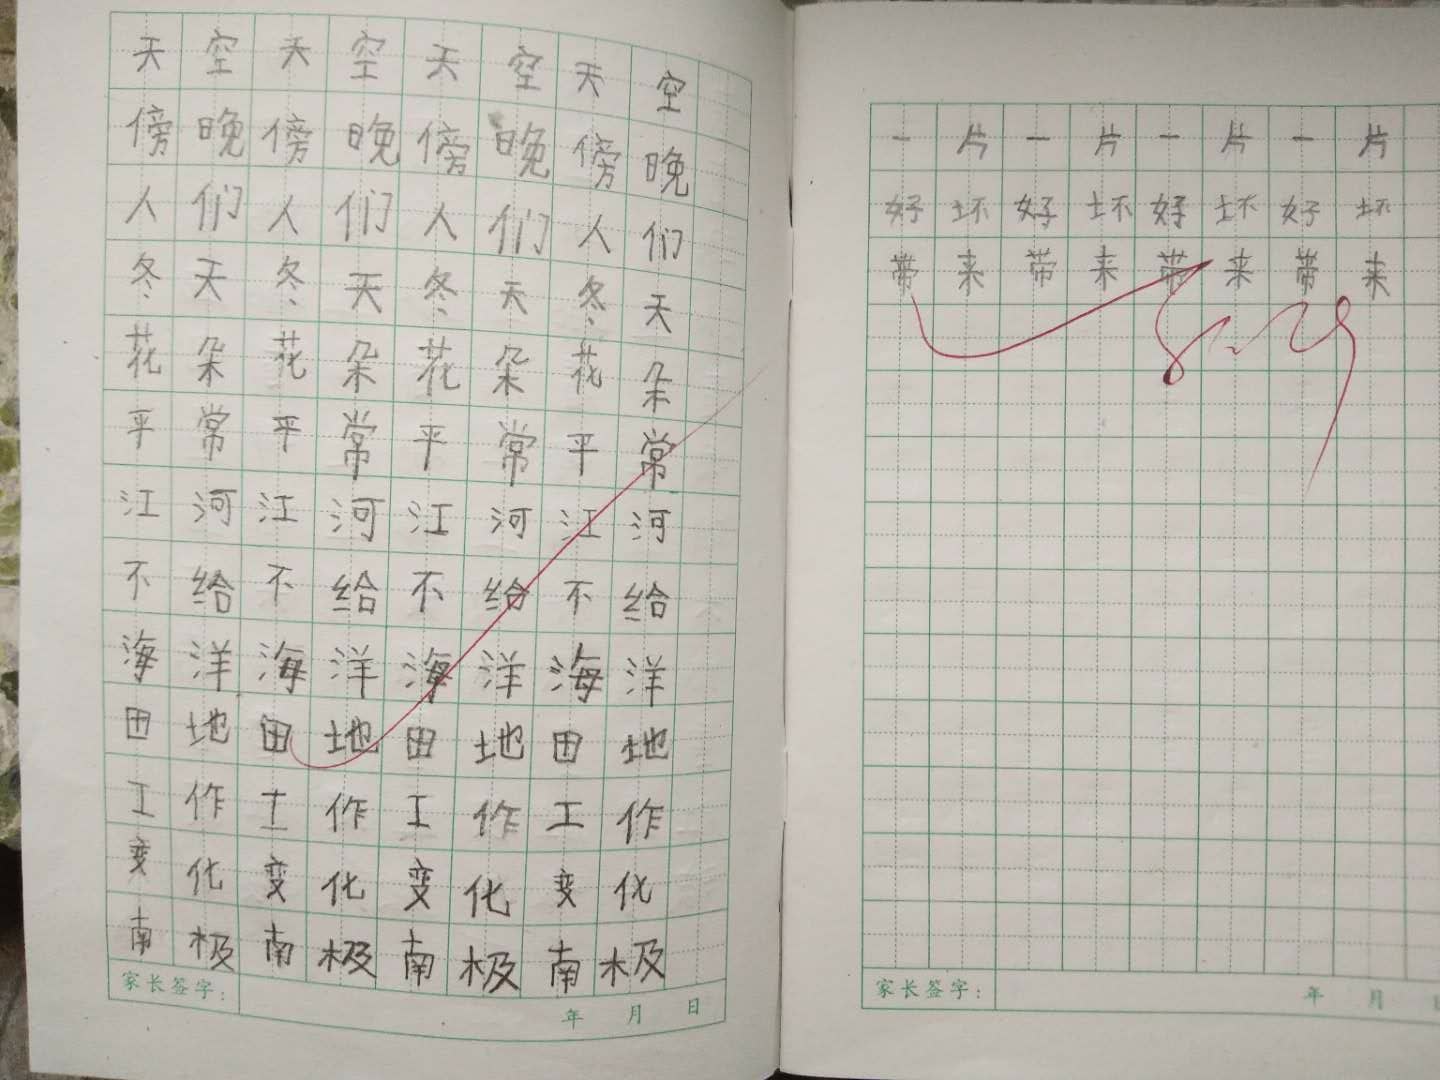 天空天空天空天空
傍晚傍晚傍晚傍晚
人们人们人们人们
冬天冬天冬天冬天
花朵花朵花朵花朵
平常平常平常平常
江河江河江河江河
不给不给不给不给
海洋海洋海洋海洋
田地田地田地田地
工作工作工作工作
变化变化变化变化
南极南极南极南极
家长签字：
年 月 日
一片一片一片一片
好坏好坏好坏好坏
带来带来带来带来
家长签字：
年 月